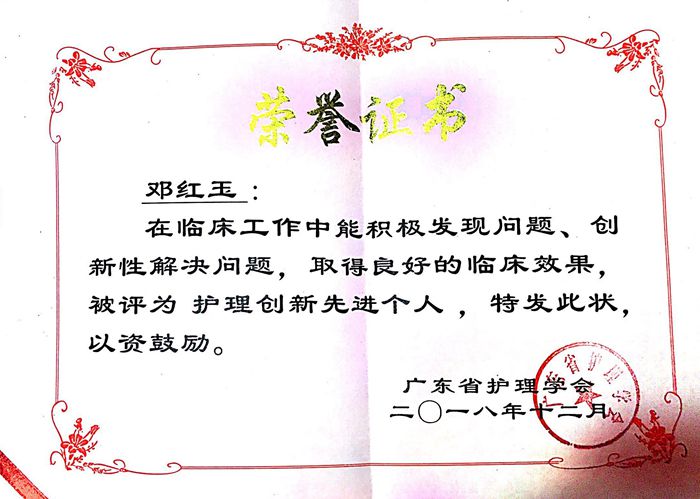 荣誉证书
邓红玉：
在临床工作中能积极发现问题、创
新性解决问题，取得良好的临床效果，
被评为 护理创新先进个人 ，特发此状，
以资鼓励。
广东省护理学会
二〇一八年十二月
广东省护理学会